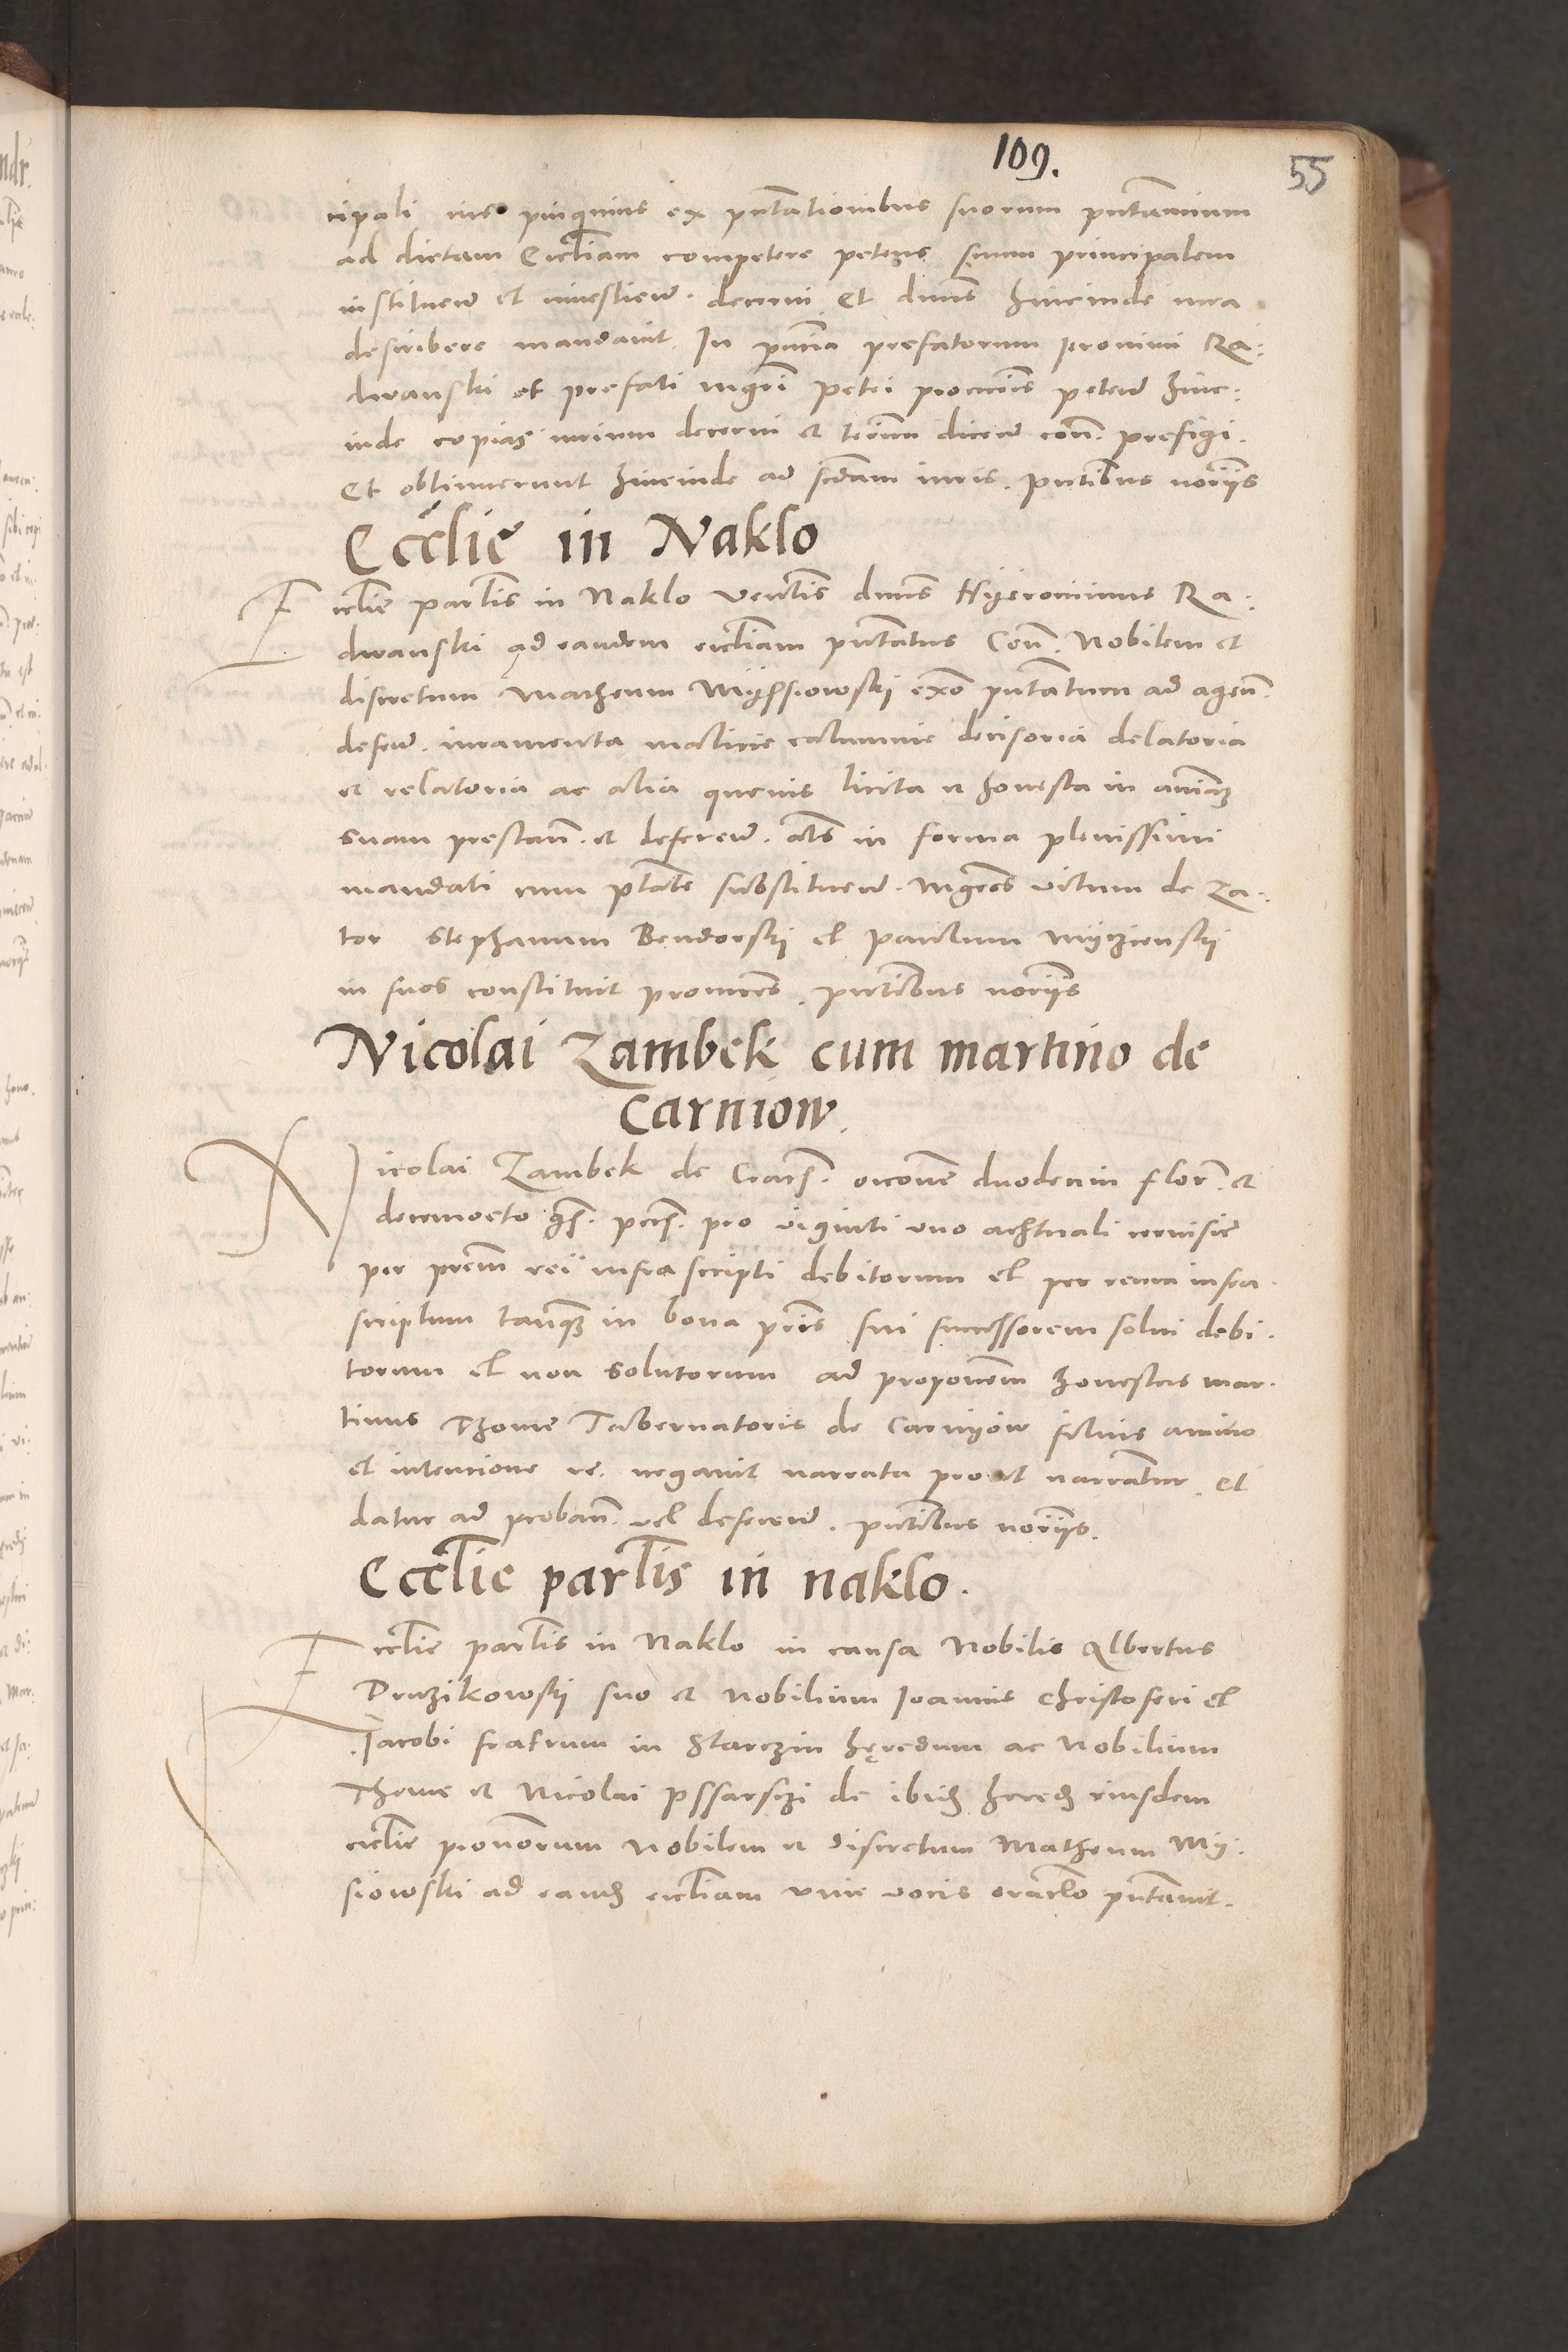 109.
55
cipali ius pinguius ex pntationibus suorum pntancium
ad dictam Ecctiam competere petens suum principalem
instituen et inuestien. decerni et dnus hincinde iura
describere mandauit. In pntia prefatorum Jeronimi Ra-
dwanski et prefati mgri Petri procuris peten hinc-
inde copias iurium decerni et terminum dicen con. prefigi.
Et obtinuerunt hincinde ad scdam iuris. pntibus notriis
Ecclie in Naklo
Ecctie partis in Naklo ventis dnus Hyeronimus Ra-
dwanski ad eandem ecctiam pntatus Con. Nobilem et
discretum Matheum Myssiowskj exo pntatum ad agen.
defen. iuramenta malicie calumnie decisoria delatoria
et relatoria ac alia queuis licita et honesta in aniam
suam prestan. et deferen. acts in forma plenissimi
mandati cum ptate substituen. mgros vitum de Za-
tor Stephanum Bendorskj et Paulum Myczienskj
in suos constituit procures. pntibus notriis
Nicolai Zambek cum martino de
Carniow.
Nicolai Zambek de Crac. occone duodecim flor. et
decemocto gs. pecs. pro viginti vno achtuali ceruisie
per prem rei infra scripti debitorum et per reum infra
scriptum tanq in bona pris sui successorem solui debi-
torum et non solutorum ad proponem honestus mar-
tinus Thome Tabernatoris de Carnyow filius animo
et intencione re. negauit narrata prout narrantur. et
datur ad proban. vel deferen. pntibus notriis.
Ecctie partis in naklo.
Ecctie partis in Naklo in causa Nobilis Albertus
Druzikowskj suo et Nobilium Joannis Christoferi et
Jacobi fratrum in Starczin heredum ac Nobilium
Thome et Nicolai Pssarsczi de ibid hered eiusdem
ecctie pronorum Nobilem et discretum Matheum My-
siowski ad eand ecctiam viue vocis oraclo pntauit.